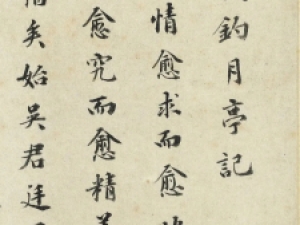 釣月亭記
情愈求而愈
愈究而愈精
矣始吳君廷